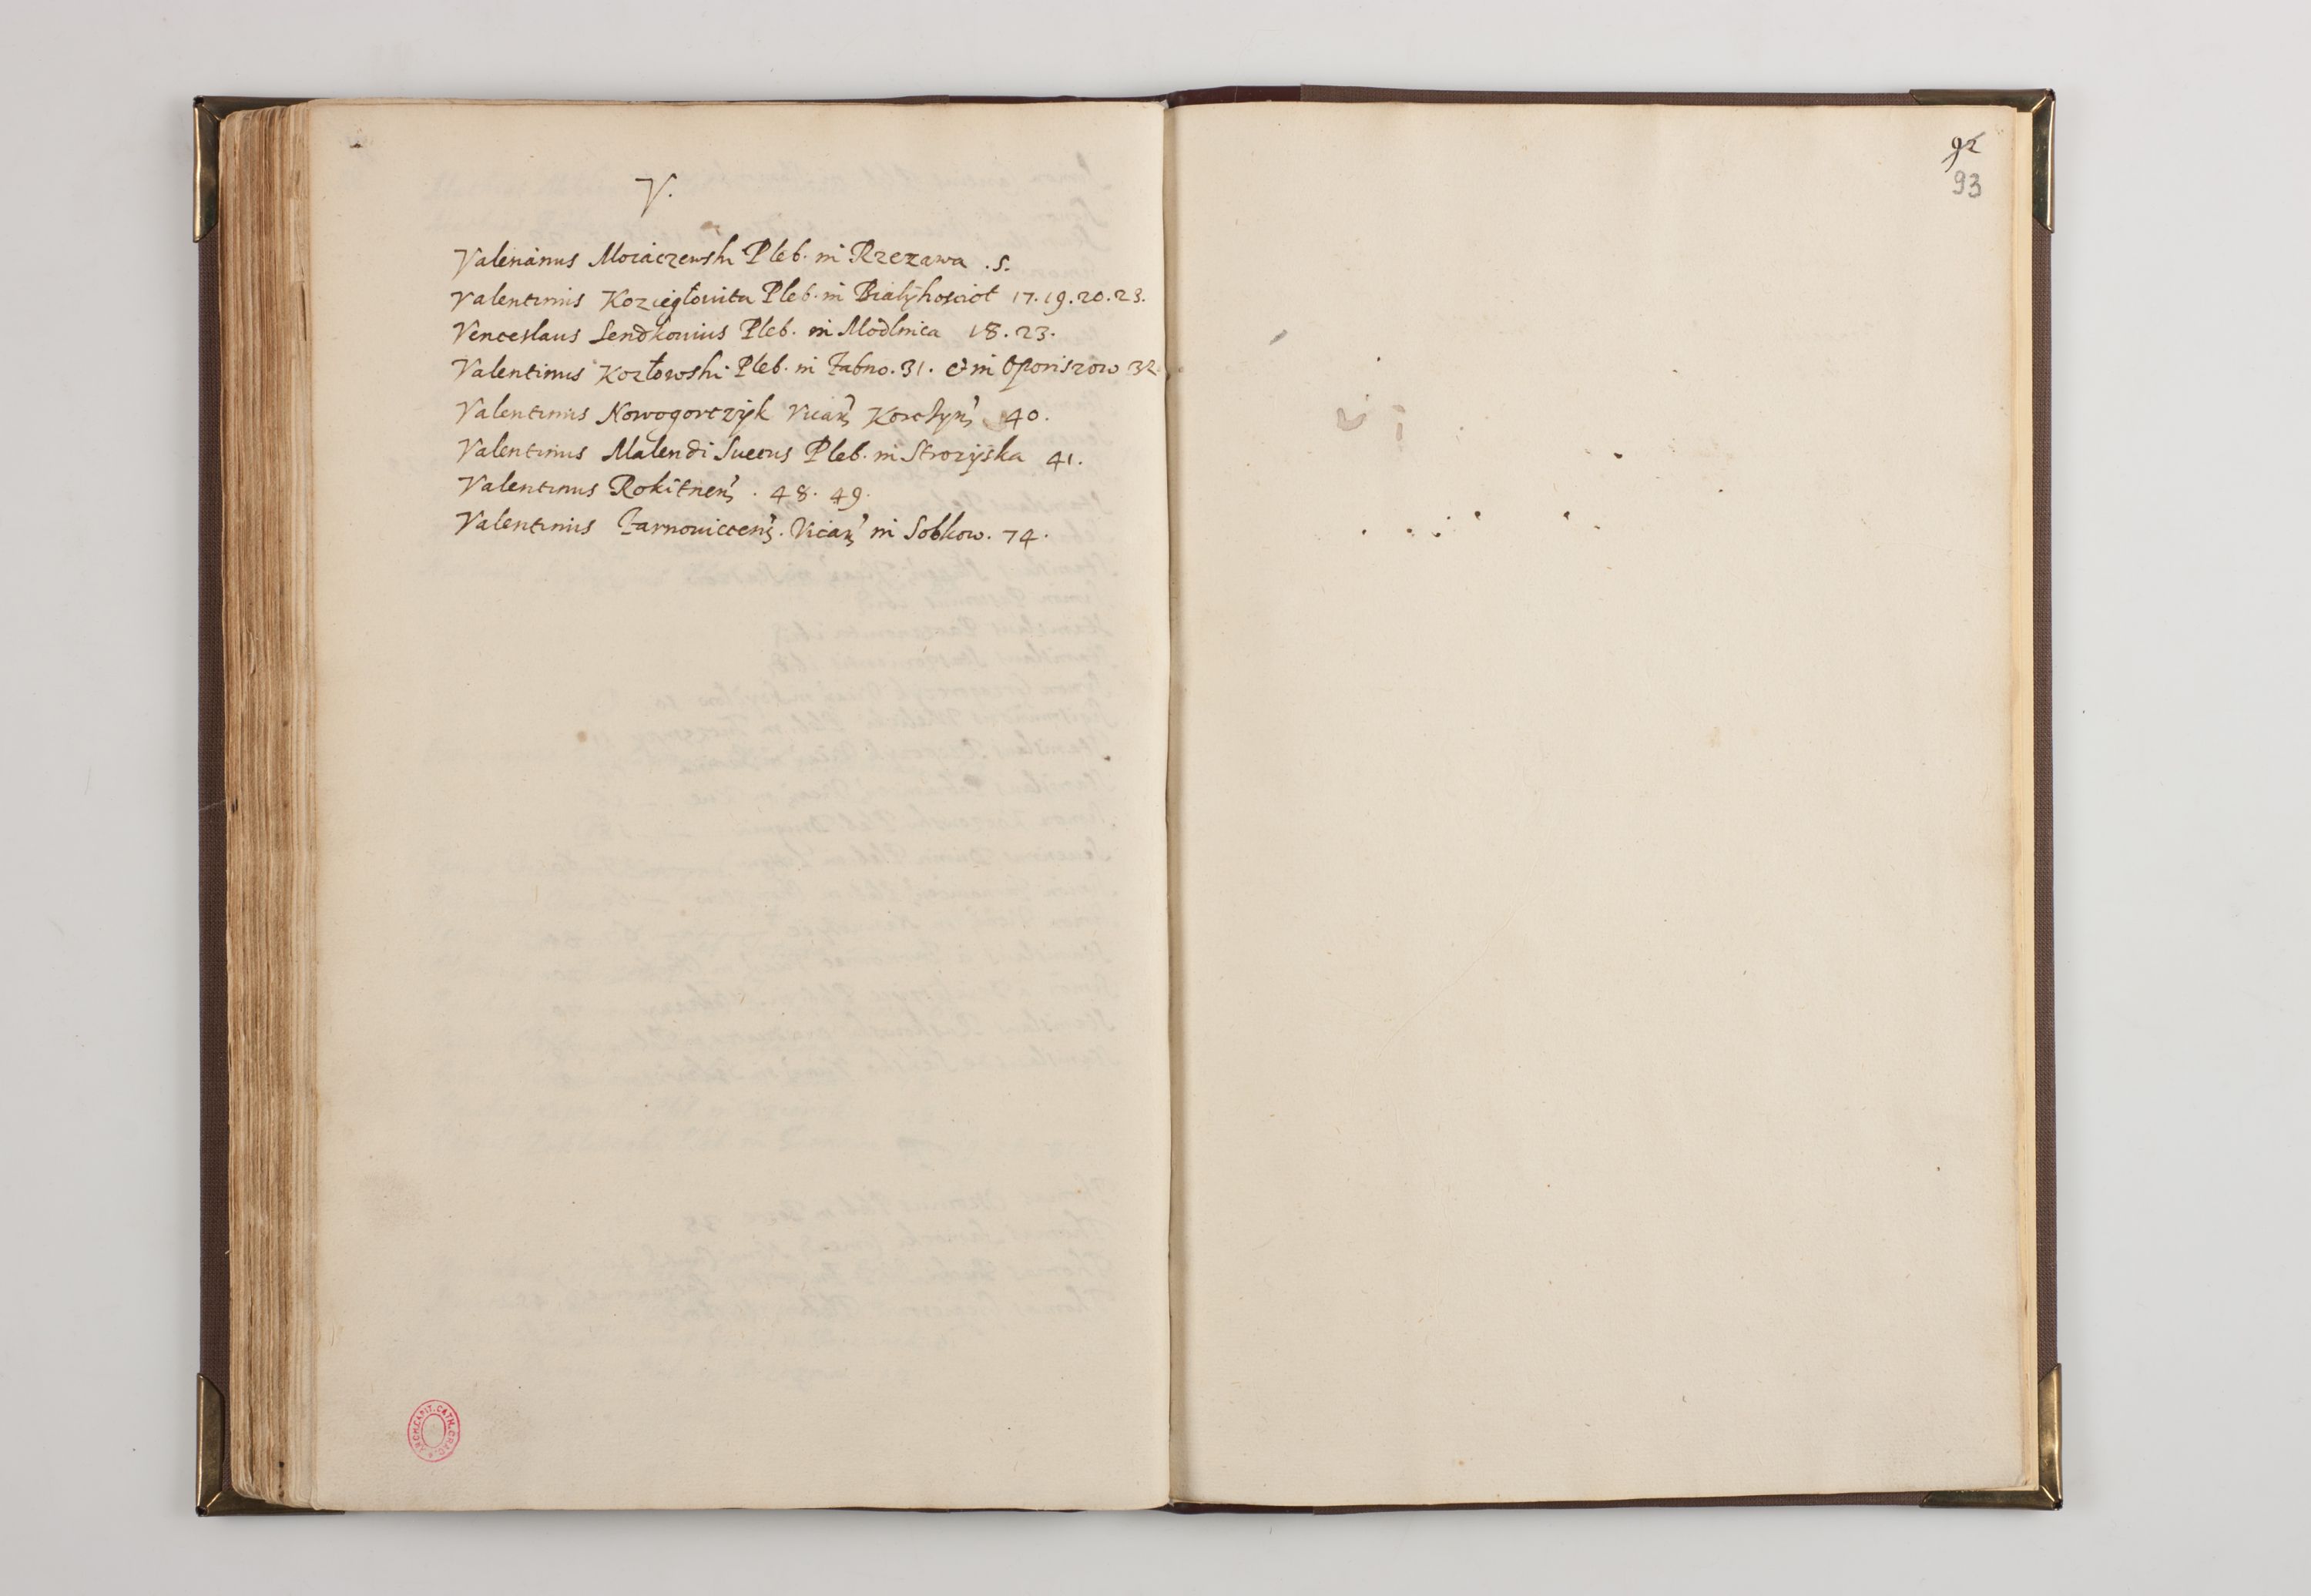 V.
Valerianus Moraczewski Pleb. in Rzezawa .5.
Valentinus Koziegłowita Pleb. in Białÿkosciol 17.19.20.23.
Venceslaus Sendkouius Pleb. in Modlnica 18.23.
Valentinus Kozłowski Pleb. in Żabno.31. et in Oporiszow 32
Valentinus Nowogorczÿk Vicar. 40.
Valentinus Malendi Suecus Pleb. in Strozÿska 41.
Valentinus Rokitnen. 48. 49.
Valentinus Vicar. in Sobkow. 74.
92
93
ARCH. CAPIT. CATH. CRAC.